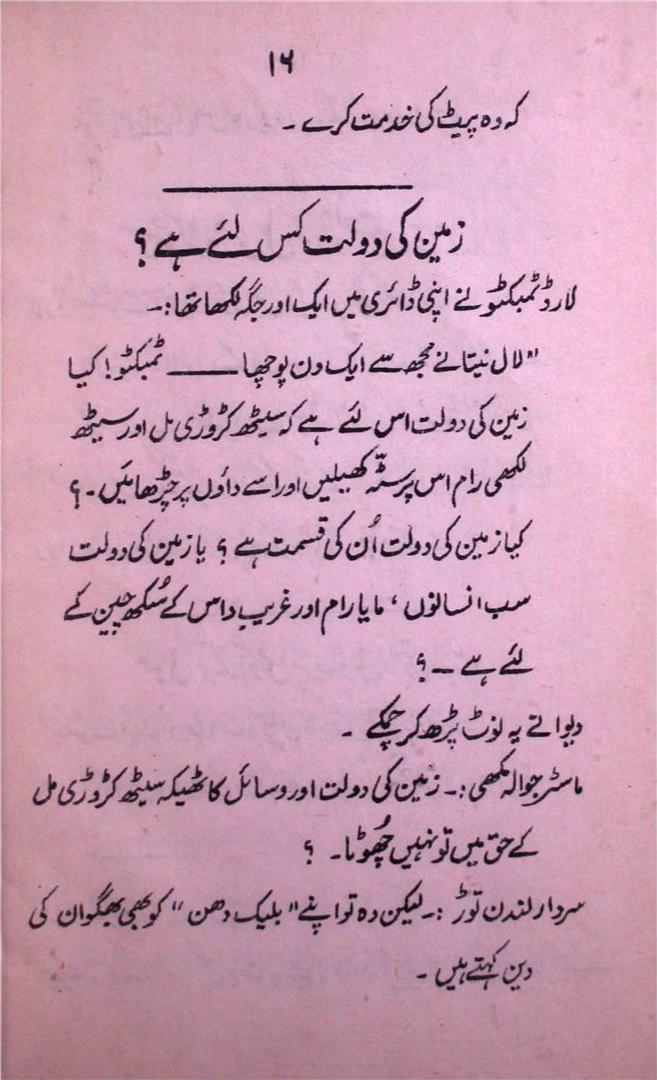 ۱۶
کہ وہ پیٹ کی خدمت کرے ۔
زمین کی دولت کس لئے ہے ؟
لارڈ ٹمبکٹو نے اپنی ڈائری میں ایک اور جگہ لکھا تھا :۔
"لال نیتا نے مجھ سے ایک دن پوچھا ــــــ ٹمبکٹو ! کیا
زمین کی دولت اس لئے ہے کہ سیٹھ کروڑی مل اور سیٹھ
لکھی رام اس پر سٹّہ کھیلیں اور اسے داؤں پر چڑھائیں ۔ ؟
کیا زمین کی دولت اُن کی قسمت ہے ؟ یا زمین کی دولت
سب انسانوں ، مایا رام اور غریب داس کے سُکھ چین کے
لئے ہے ۔ ؟
دیوانے یہ نوٹ پڑھ کر چمکے ۔
ماسٹر جوالہ مکھی :۔ زمین کی دولت اور وسائل کا ٹھیکہ سیٹھ کروڑی مل
کے حق میں تو نہیں چھُوٹا ۔ ؟
سردار لندن توڑ :۔ لیکن وہ تو اپنے "بلیک دھن" کو بھی بھگوان کی
دین کہتے ہیں ۔